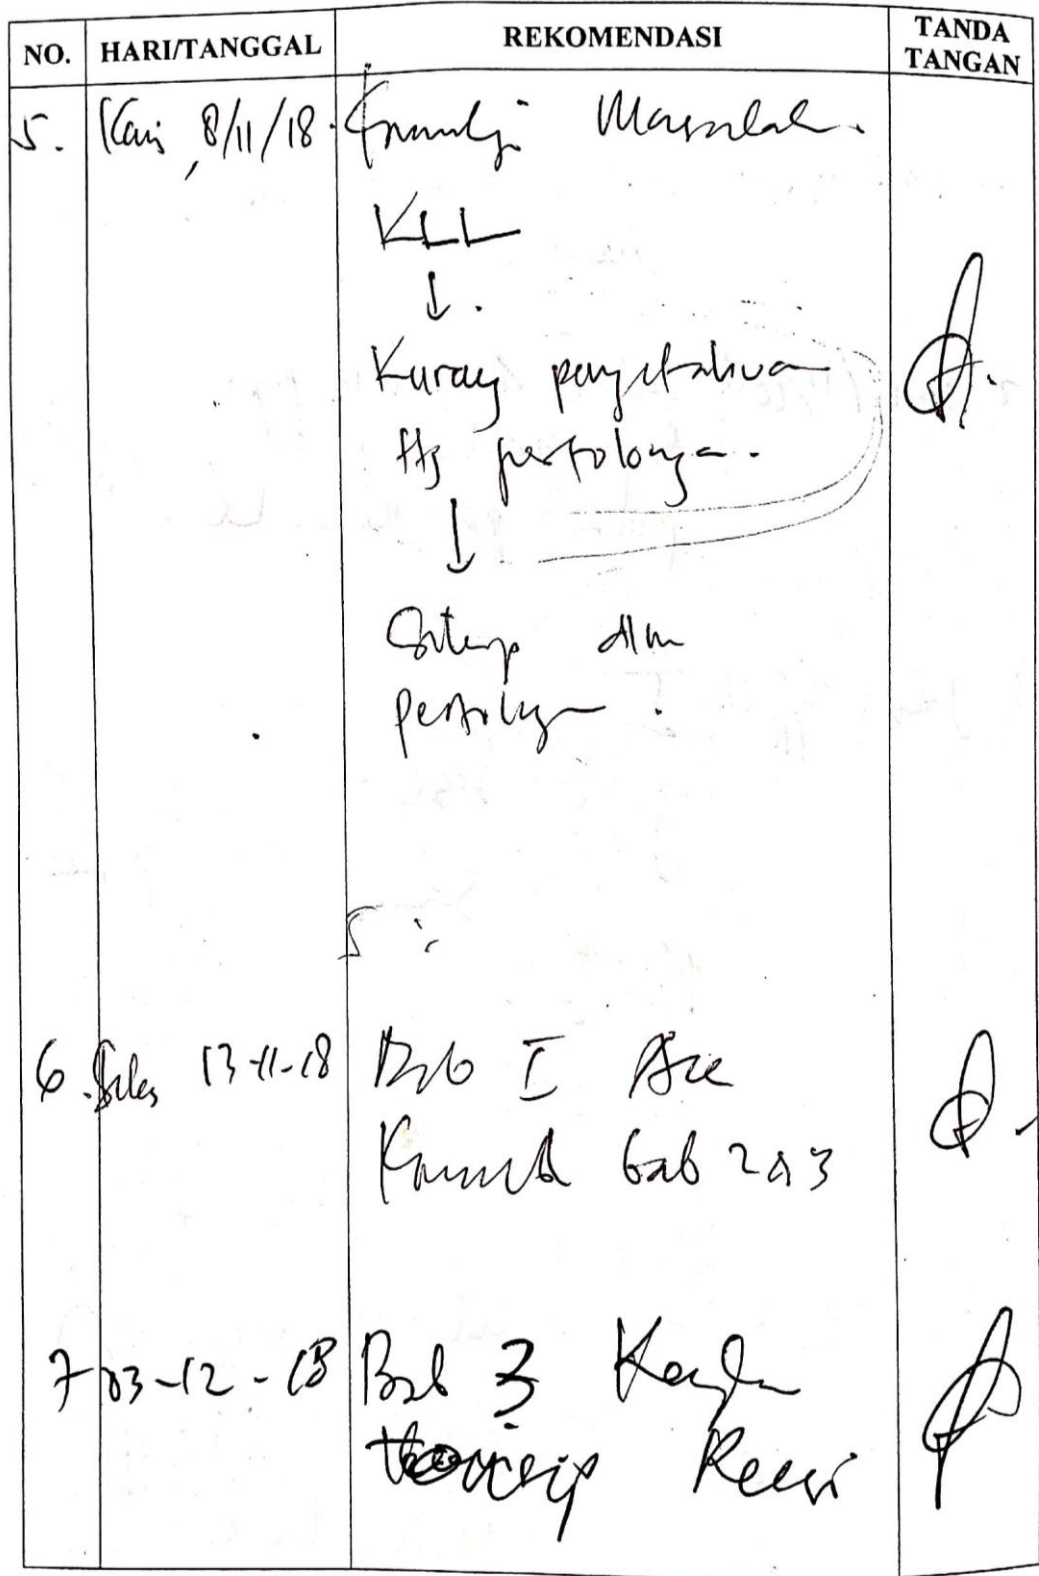 NO. HARI/TANGGAL REKOMENDASI TANDA TANGAN
5. Kamis, 8/11/18. Masalah.
KLL
↓.
Kurang pengetahuan
ttg pertolongan.
↓
dlm
pertolongan.
6. Selas 13-11-18 Bab I Acc
bab 2 & 3
7 03-12-18 Bab 3
Konsep Revisi